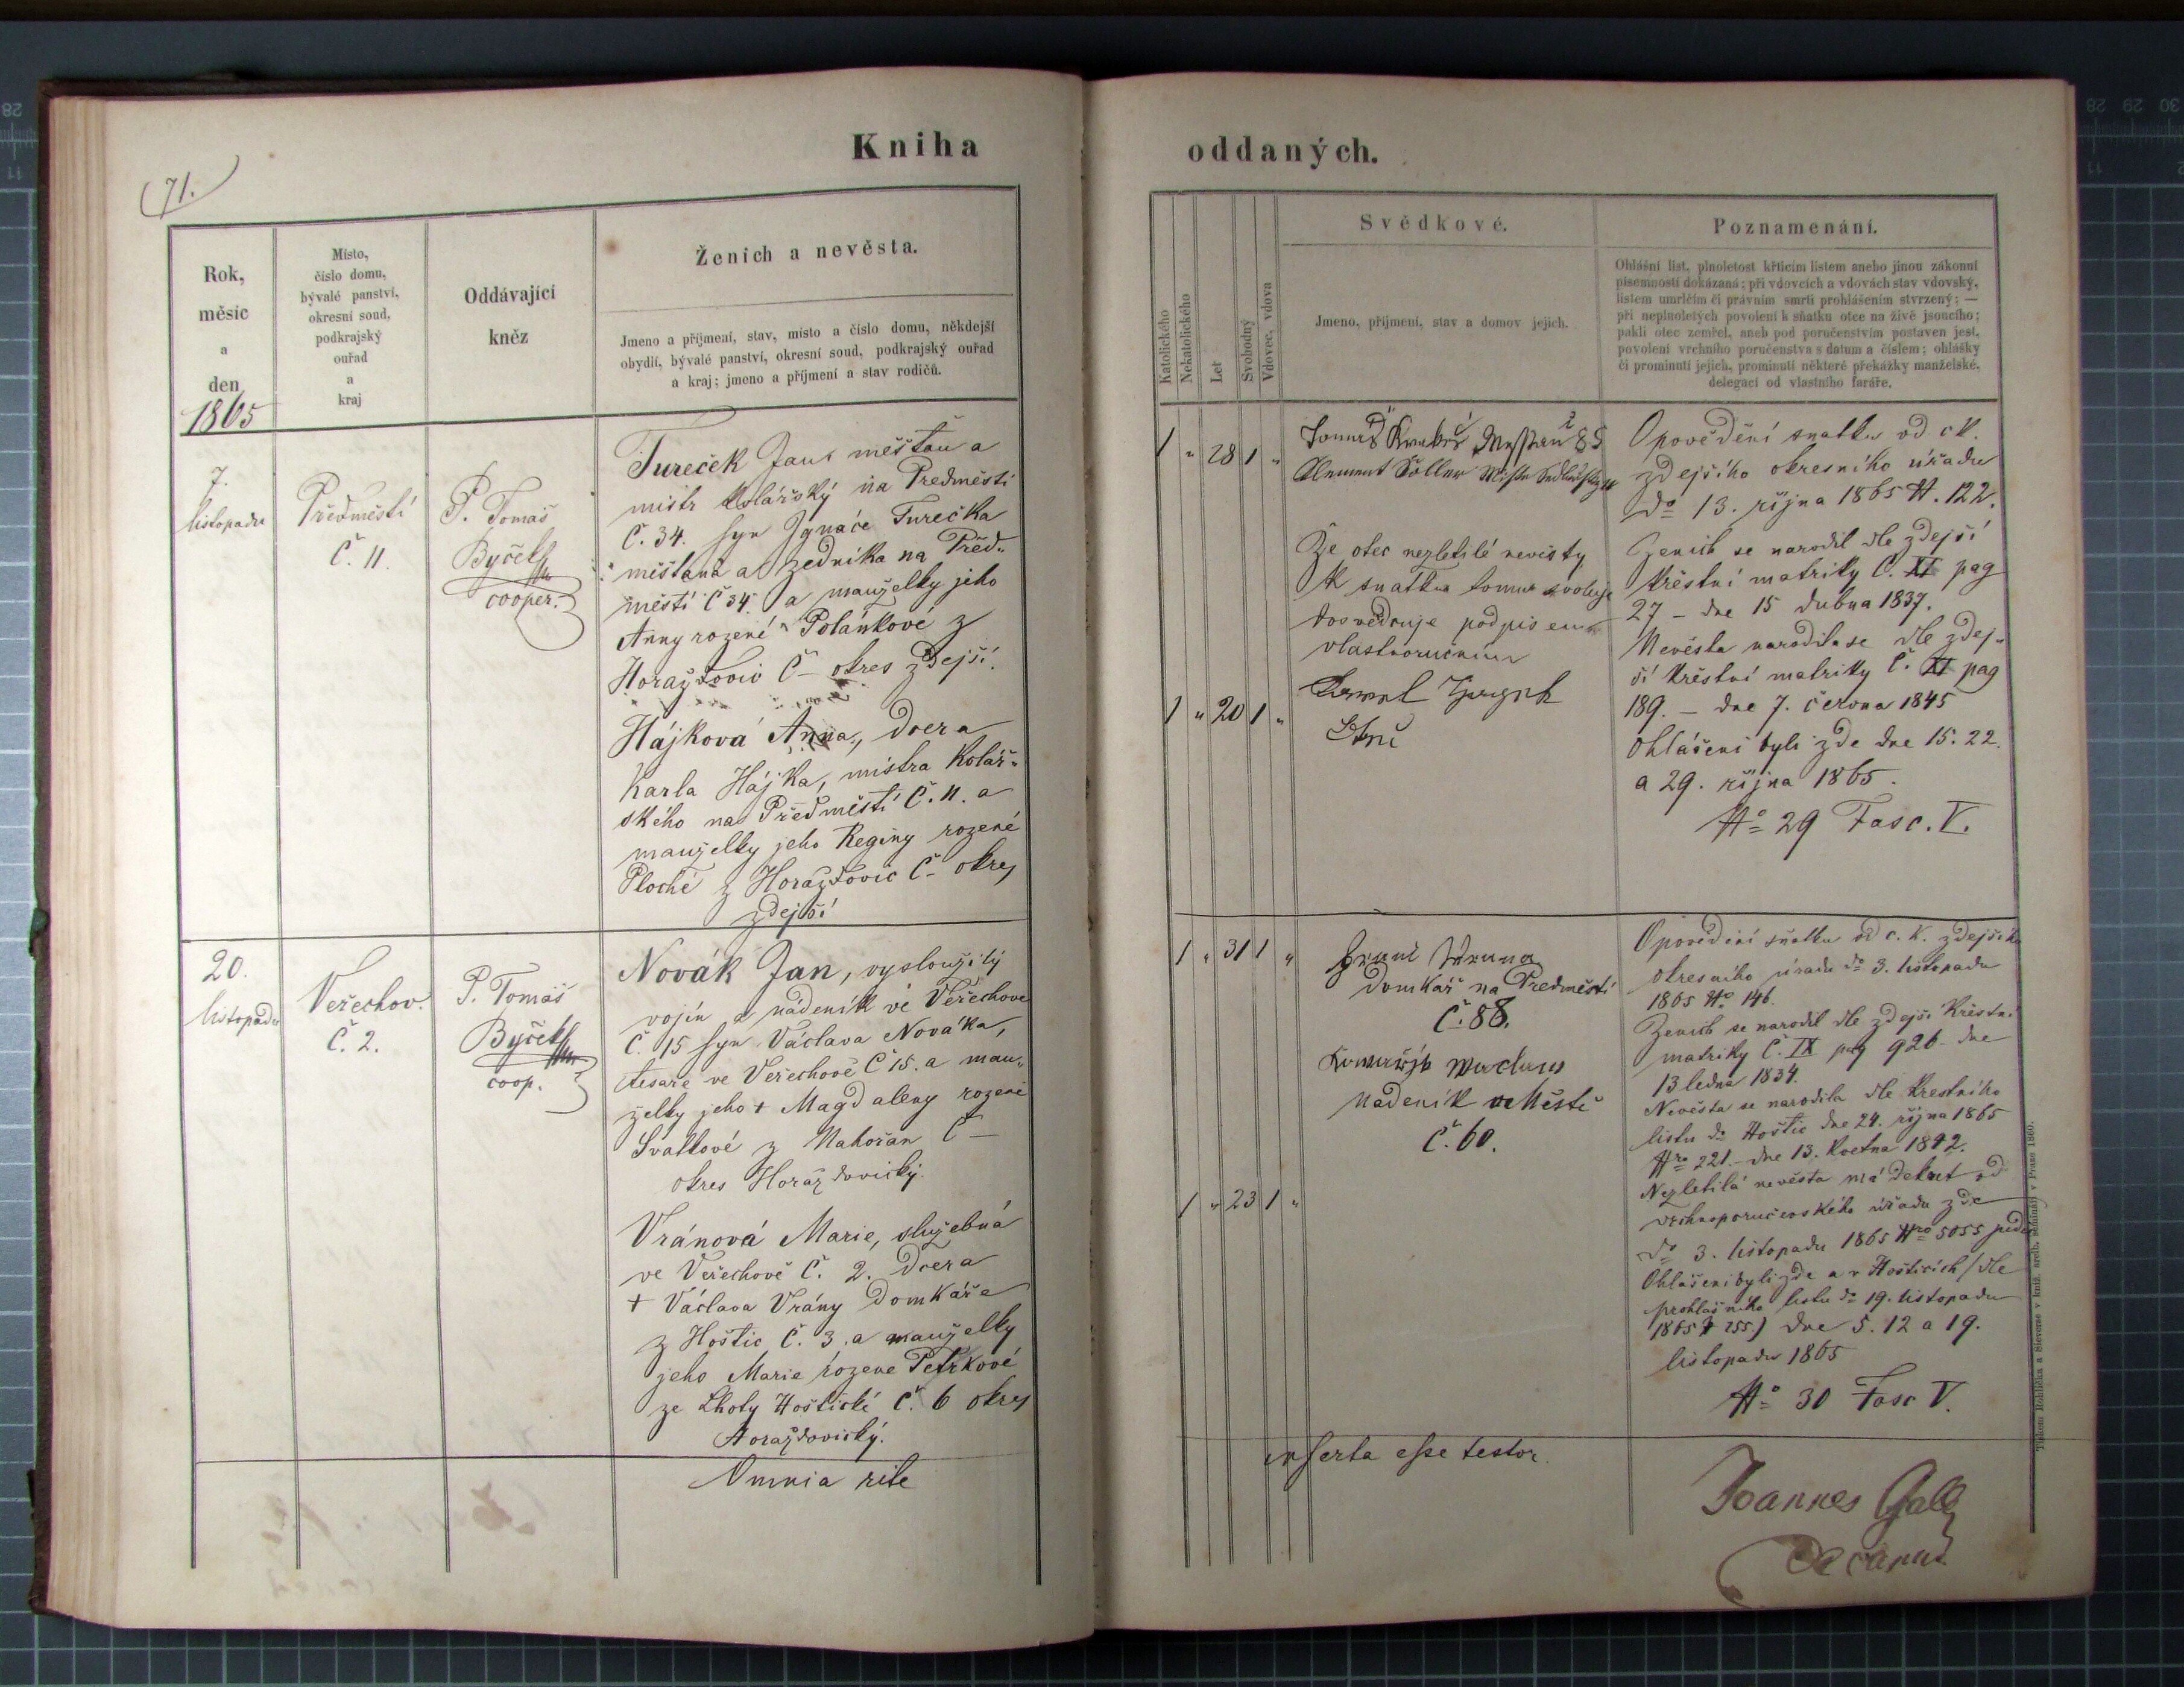 Kniha
oddaných.
71.
Rok,
měsíc
a
den
1865
Místo,
číslo domu,
bývalé panství,
okresní soud,
podkrajský
ouřad
a
kraj
Oddávající
kněz
Ženich a nevěsta.
Jmeno a příjmení, stav, místo a číslo domu, někdejší
obydlí, bývalé panství, okresní soud, podkrajský ouřad
a kraj; jmeno a příjmení a stav rodičů.
7.
listopadu
Předměstí
Č. 11.
P. Tomáš
Byček
cooper.
Tureček Jan měšťan a
mistr kolářský na Předměstí
Č. 34. syn Ignáce Turečka
měšťana a zedníka na Před-
městí č 34. a manželky jeho
Anny rozené Polánkové z
Horažďovic Č – okres zdejší.
Hájková Anna, dcera
Karla Hájka, mistra kolář-
ského na Předměstí Č. 11. a
manželky jeho Reginy rozené
Ploché z Horažďovic Č – okres
zdejší
20.
listopadu
Veřechov.
Č. 2.
P. Tomáš
Byček
coop.
Novák Jan, vysloužilý
vojín a nádeník ve Veřechově
Č. 15 syn Václava Nováka,
tesaře ve Veřechově Č 15. a man-
želky jeho † Magdaleny rozené
Svatkové z Nahořan Č –
okres Horažďovický.
Vránová Marie, služebná
ve Veřechově Č. 2. dcera
† Václava Vrány domkáře
z Hoštic Č. 3. a manželky
jeho Marie rozene Petrkové
ze Lhoty Hoštické Č. 6 okres
Horažďovický.
Omnia rite
Katolického
Nekatolického
Let
Svobodný
Vdovec, vdova
Svědkové.
Jmeno, příjmení, stav a domov jejich.
Poznamenání.
Ohlášní list, plnoletost křticím listem anebo jinou zákonní
písemností dokázaná; při vdovcích a vdovách stav vdovský,
listem umrlčím či právním smrti prohlášením stvrzený; —
při neplnoletých povolení k sňatku otce na živě jsoucího;
pakli otec zemřel, aneb pod poručenstvím postaven jest,
povolení vrchního poručenstva s datum a číslem; ohlášky
či prominutí jejich, prominutí některé překážky manželské,
delegací od vlastního faráře.
1 " 28 1 "
Tomáš 85
Klement
Že otec nezletilé nevěsty
k snatku tomu svoluje
dosvědčuje podpisem
vlastnoručním
1 " 20 1 "
Opovědění snatku od ck.
zdejšího okresního úřadu
do 13. října 1865 N. 122.
Ženich se narodil dle zdejší
křestní matriky Č. XI pag
27 – dne 15 dubna 1837.
Nevěsta narodila se dle zdej-
ší křestní matriky Č. XI pag
189. – dne 7. června 1845
Ohlášeni byli zde dne 15. 22.
a 29. října 1865.
No 29 Fasc. V.
1 " 31 1 "
domkář na Předměstí
Č. 88.
nádeník v Městě
Č. 60.
1 " 23 1 "
Opovědění sňatku od c. k. zdejšího
okresního úřadu do 3. listopadu
1865 No 146.
Ženich se narodil dle zdejší křestní
matriky Č. IX pag 926 – dne
13 ledna 1834.
Nevěsta se narodila dle křestního
listu do Hoštic dne 24. října 1865
Nro 221. – dne 13. května 1842.
Nezletilá nevěsta má dekret od
vrchnoporučenského úřadu zde
do 3. listopadu 1865 Nro 5055
Ohlášeni byli zde a v Hošticích (dle
prohlašního listu do 19. listopadu
1865 N 255.) dne 5. 12 a 19.
listopadu 1865
No 30 Fasc V.
inserta esse testor.
Joannes Gall
Decanus
Tiskem Rohlíčka a Sieverse v kníž. arcib. semináři v Praze 1860.